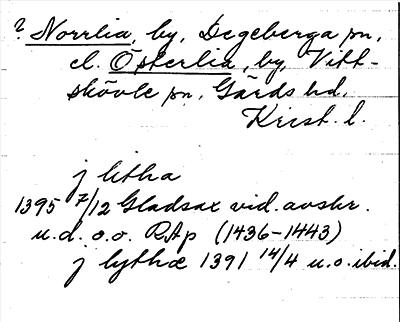 ? Norrlia, by, Degeberga sn,
el. Österlia, by, Vitt-
skövle sn, Gärds hd,
Krist. l.
j litha
1395 7/12 Gladsax vid. avskr.
u.d. o.o. RAp (1436-1443)
j lythæ 1391 14/4 u.o. ibid.